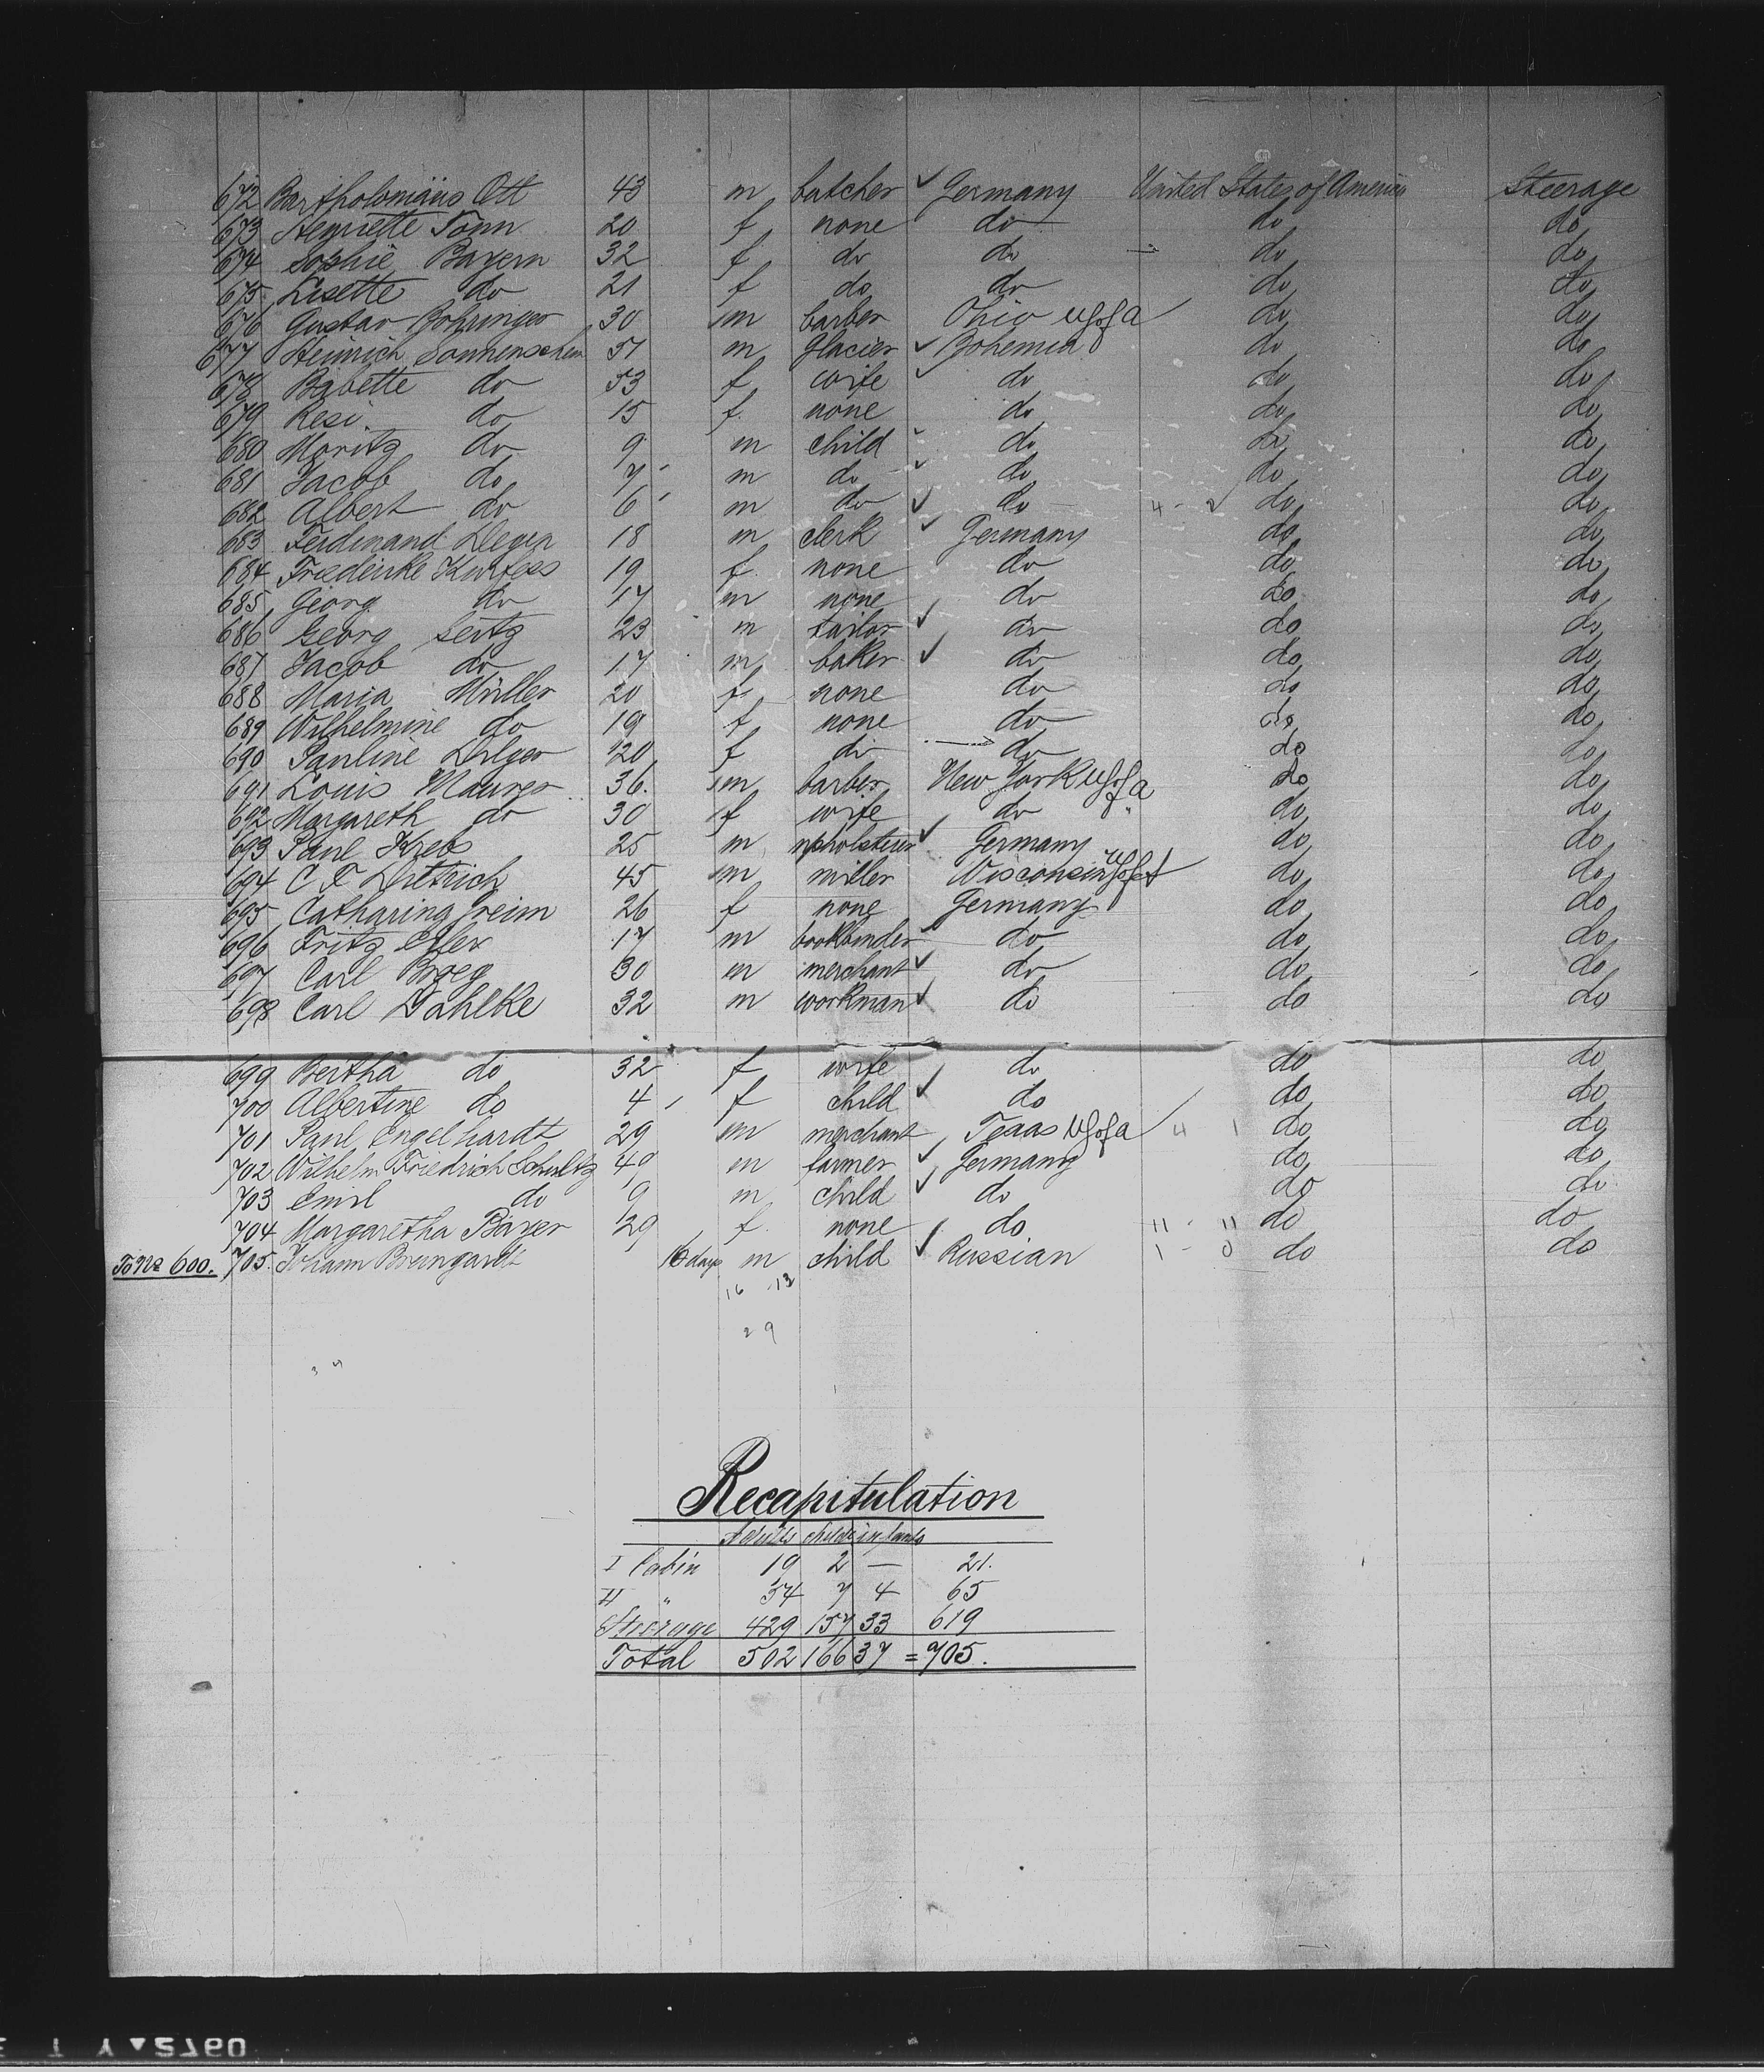 672 Bartholomäus Ott 43 m butcher ✓ Germany United States of America Steerage
673 Henriette Tonn 20 f none do do do
674 Sophie Bayern 32 f do do do do
675 Lisette do 21 f do do do do
676 Gustav Bohringer 30 m barber Ohio USofA do do
677 Heinrich Sonnenschein 51 m Glacier ✓ Bohemia do do
678 Babette do 53 f wife ✓ do do do
679 Resi do 15 f. none do do do
680 Moritz do 9 m child do do do
681 Jacob do 7 m do do do do
682 Albert do 6 m do ✓ do 4 - 2 do do
683 Ferdinand 18 m clerk ✓ Germany do do
684 Friederike Kurfess 19 f none do do do
685 Georg do 17 m none do do do
686 Georg Seitz 23 m tailor ✓ do do do
687 Jacob do 17 m baker ✓ do do do
688 Maria Müller 20 f none do do do
689 Wilhelmine do 19 f none do do do
690 Pauline Dilger 20 f do do do do
691 Louis Maurer 36. m barber New York USofA do do
692 Margareth do 30 f wife do " do do
693 Paul Krebs 25 m upholsterer ✓ Germany do do
694 C F Dittrich 45 m miller Wisconsin USofA do do
695 Catharina Greim 26 f none Germany do do
696 Fritz 17 m bookbinder do do do
697 Carl Broeg 30 m merchant ✓ do do do
698 Carl Dahlke 32 m workman ✓ do do do
699 Bertha do 32 f wife do do do
700 Albertine do 4 f child ✓ do do do
701 Paul Engelhardt 29 m merchant Texas USofA 4 1 do do
702 Wilhelm Friedrich Schultz 49 m farmer ✓ Germany do do
703 Emil do 9 m child ✓ do do do
704 Margaretha Bayer 29 f. none do 11 - 11 do do
To No 600. 705. Johann Brumgardt 16 days m child ✓ Russian 1 - 0 do do
16 13
29
Recapitulation
Adults childr infants
I Cabin 19 2 — 21.
II " 54 7 4 65
Steerage 429 157 33 619
Total 502 166 37 = 705.